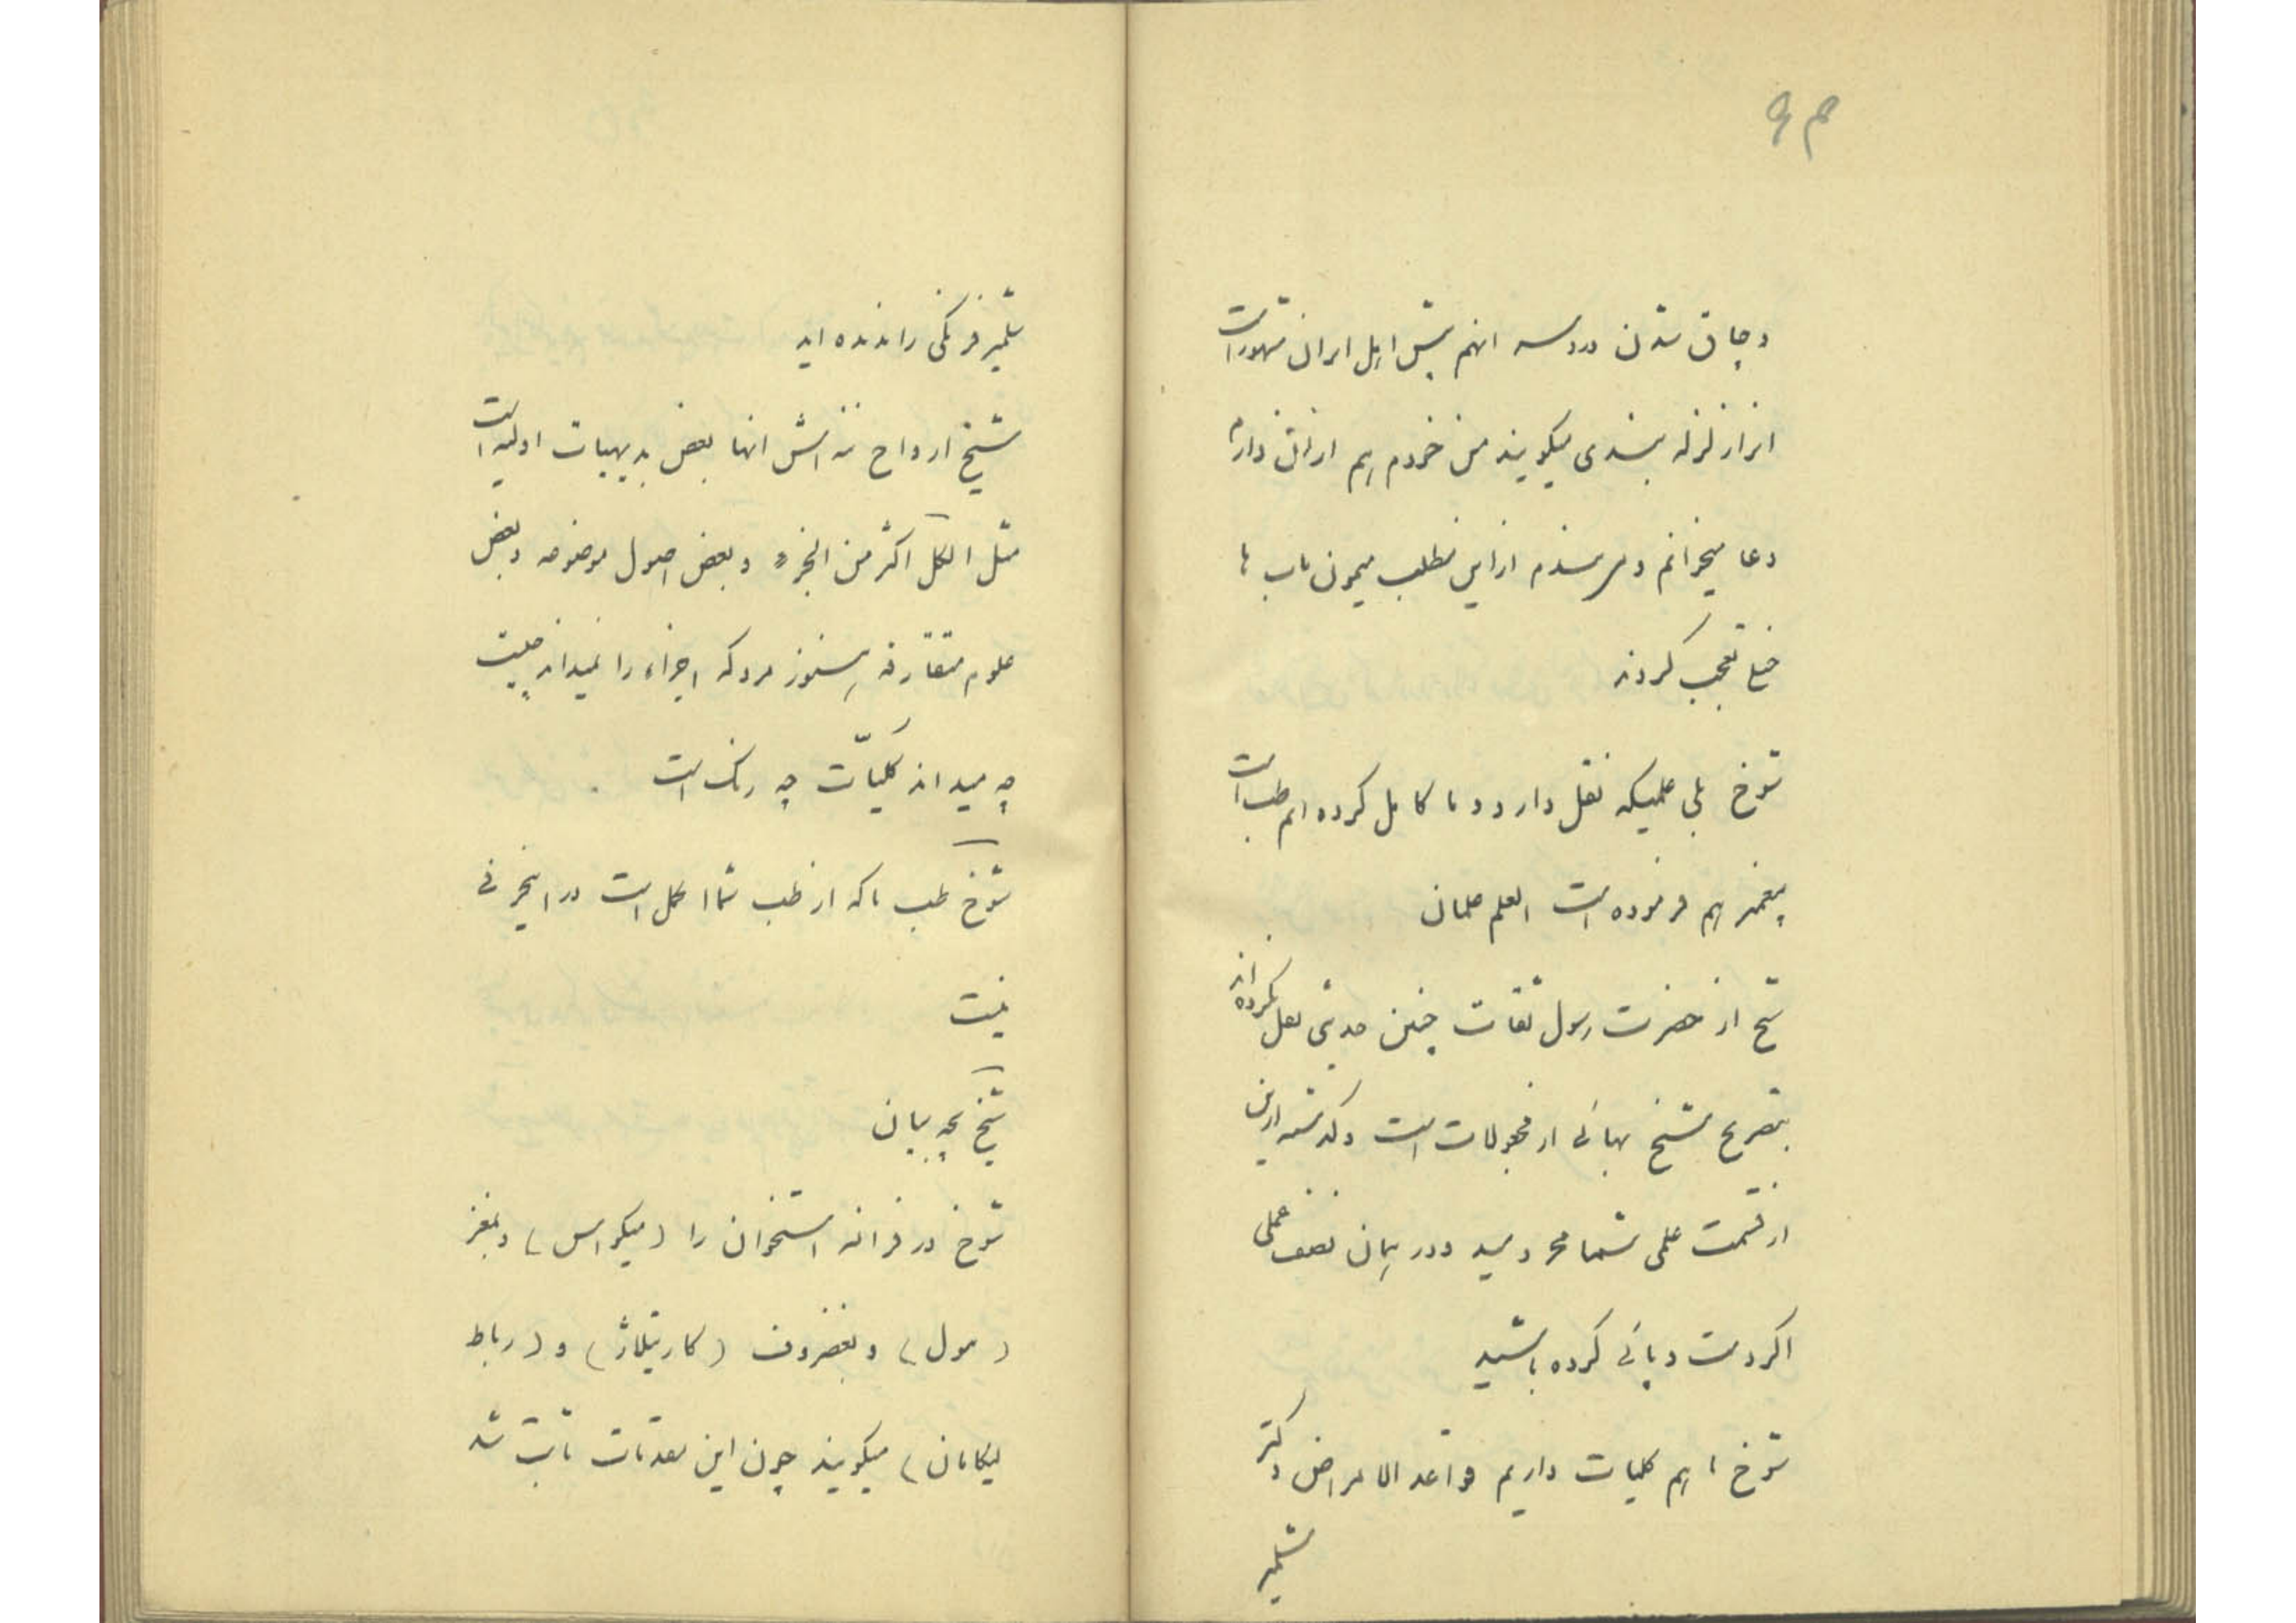 و چاق شدن در دسه انهم پیش اهل ایران مشهور است
دعا میخوانم و میرسندم از این مطلب میمون باب ها
خیلی تعجب کردند
شوخ بلی علمیکه نقل دارد و ما کامل کرده ایم طب است
پیغمبر هم فرموده است العلم علمان
شیخ از حضرت رسول ثقات چنین حدیثی نقل نکرده اند
بتصریح شیخ بهائی از مجعولات است و گذشته از این
از قسمت علمی شما محرومید و در میان نصف عملی
اگر دست و پائی کرده باشید
شوخ ما هم کلیات داریم قواعد الامراض دکتر
شلیمر
شلیمر فرنگی را ندیده اید
شیخ ارواح ننه اش انها بعض بدیهیات اولیه است
مثل الکل اکثر من الجزء و بعض اصول موضوعه و بعض
علوم متقارفه هنوز مردکه اجزاء را نمیداند چیست
چه میداند کلیّات چه رنگ است
شوخ طب ما که از طب شما اکمل است در اینحرفی
نیست
شیخ بچه بیان
شوخ در فرانسه استخوان را (میکواس) و بمغز
(مول) و بغضروف (کارتیلاژ) و (رباط
لیکامان) میگویند چون این مقدمات ثابت شد